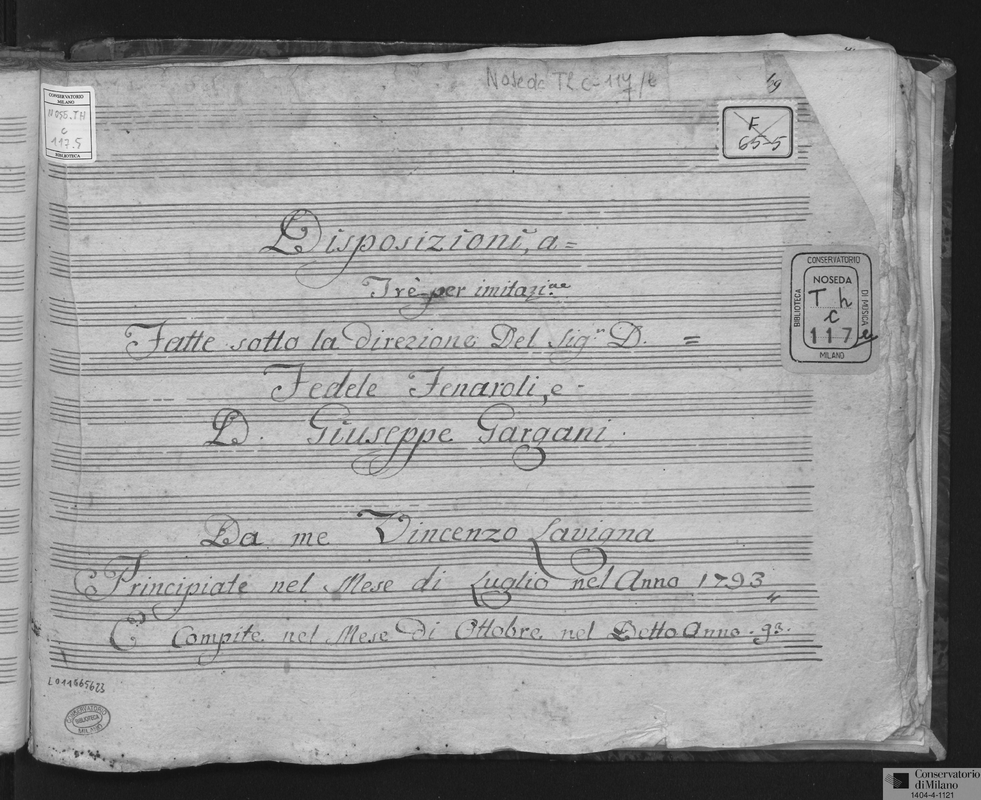 Noseda Th. c-117/e
69
CONSERVATORIO
MILANO
NOSS. TH
c
117.5
BIBLIOTECA
F
65-5
Disposizioni, a =
Trè per imitazi.ne
CONSERVATORIO
NOSEDA
Th
c
117 e
BIBLIOTECA
DI MUSICA
MILANO
Fatte sotto la direzione Del Sig.r D. =
Fedele Fenaroli, e
D. Giuseppe Gargani.
Da me Vincenzo Lavigna
Principiate nel Mese di Luglio nel Anno 1793
E Compite nel Mese Di Ottobre nel Detto Anno . 93.
L011665623
CONSERVATORIO
BIBLIOTECA
MILANO
Conservatorio
di Milano
1404-4-1121